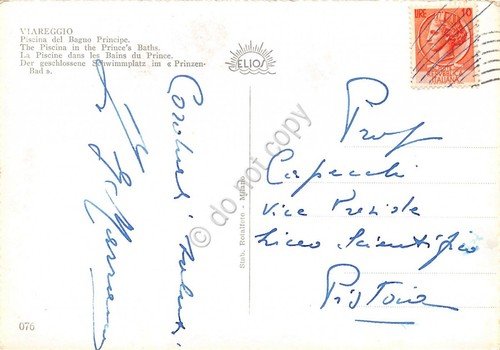 VIAREGGIO
Piscina del Bagno Principe.
The Piscina in the Prince's Baths.
La Piscine dans les Bains du Prince.
Der geschlossene Schwimmplatz im « Prinzen-
Bad ».
ELIOS
LIRE 10
REPUBBLICA
ITALIANA
Cordiali saluti
Prof
Capecchi
Vice Preside
Liceo Scientifico
Pistoia
Stab. Bonalfete - Milano
076
© do not copy